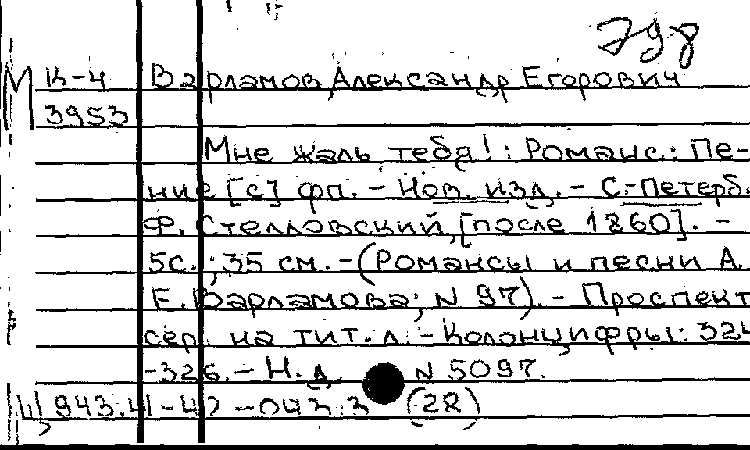 798
М К-4 Варламов Александр Егорович
3953
Мне жаль тебя!: Романс.: Пе-
ние [с] фп. - Нов. изд. - С.-Петерб.
Ф. Стелловский, [после 1860]. -
5с.; 35 см. - (Романсы и песни А.
Е. Варламова; N 97). - Проспект
сер. на тит. л. - Колонцифры: 324
-326. - Н. д. N 5097.
Щ 943.41-42-043.3 (2R)